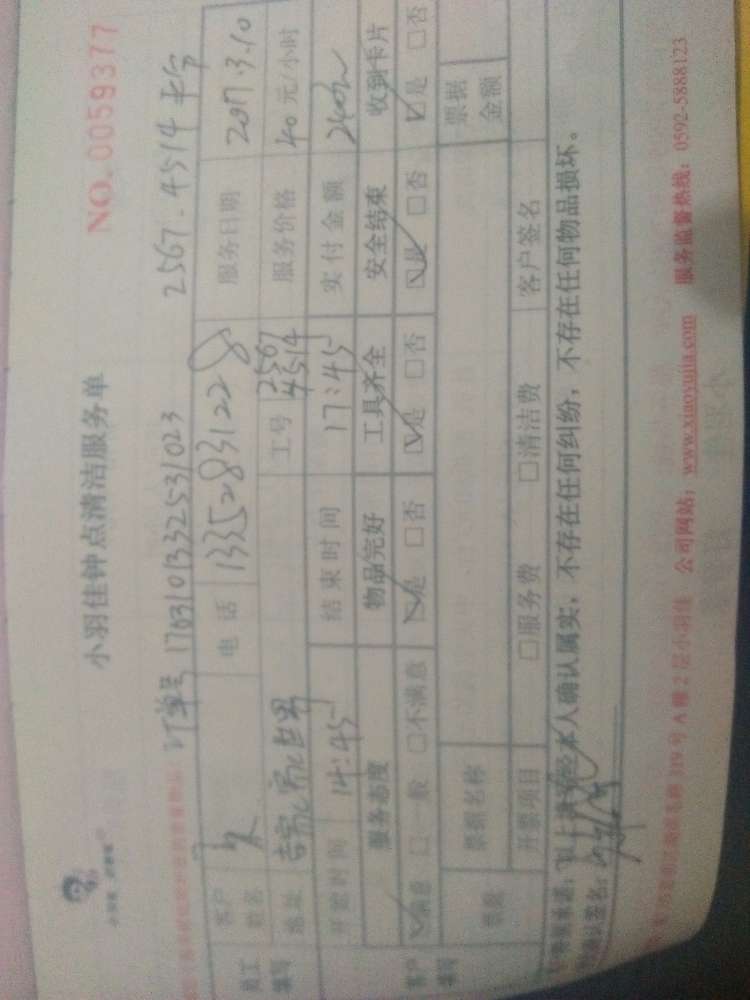 小羽佳钟点清洁服务单
NO.0059377
订单号 1703101332531023 2567.4514
客户姓名 电话 13352831228 服务日期 2017.3.10
员工填写 地址 工号 2567 4514 服务价格 40元/小时
开始时间 14:45 结束时间 17:45 实付金额
服务态度 物品完好 工具齐全 安全结束 收到卡片
客户填写 ☑满意 □一般 □不满意 ☑是 □否 ☑是 □否 ☑是 □否 ☑是 □否
票据名称 票据金额
开票项目 □服务费 □清洁费 客户签名
以上 本人确认属实，不存在任何纠纷，不存在任何物品损坏。
确认签名：
319号A幢2层小羽佳 公司网站：www.xiaoyujia.com 服务监督热线：0592-5888123